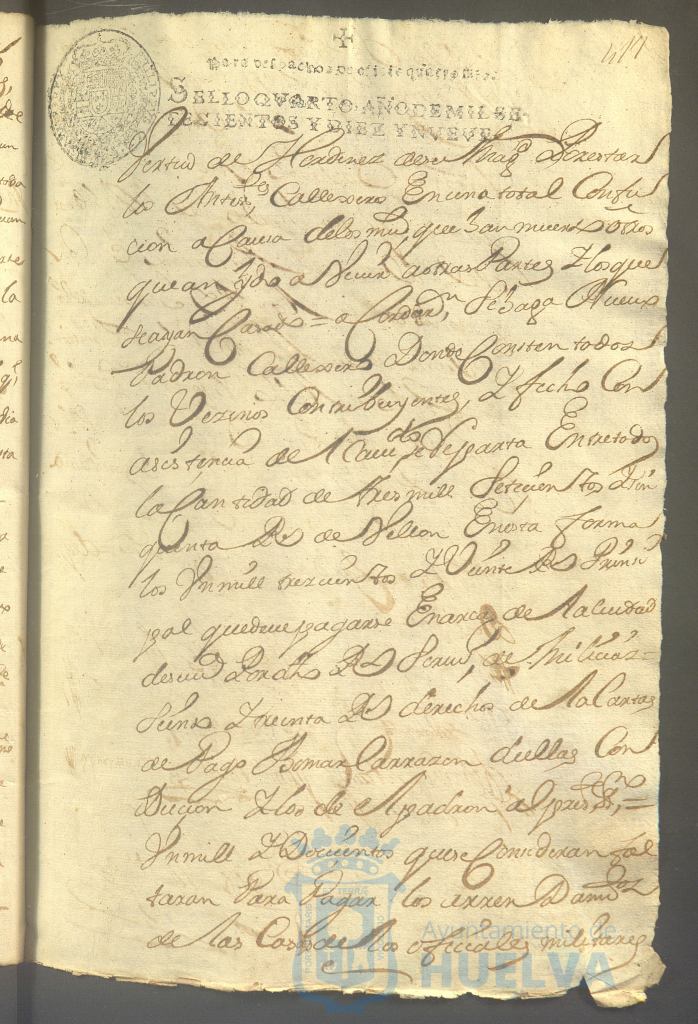 417
Para despachos de oficio quatro mrs.
SELLO QVARTO AÑO DE MIL SE-
TECIENTOS Y DIEZ Y NVEVE
Vertud de Hordenez de su Magd Por estar
los Callexero En una total Confu
cion a Causa de los muchos que han muerto otros
que an ydo a Vivir a otras Partes Y los que
se ayan Casado = acordaron, Se haga Nuevo
Padron Callexero Donde Consten todos
los Vezinos Contribuyentes, Y fecho Con
asistencia de Reparta Entre todos
la Cantidad de tres mill Setecientos Y sin
quenta Rs de Vellon En esta forma
los Un mill trezientos Y Veinte Rs Princi
pal que deve pagarse En arcas de la ciudad
de sevª Por dho Rl Servº de Milicias =
Siento Y treinta Rs derechos de la Cartas
de Pago Y tomar la razon de ellas Con
Ducion Y los de el padron al presste Ssno =
Un mill Y Docientos que se Consideran fal
taran Para Pagar los arrendamtos
de las Casas de los oficiales militares
Ayuntamiento de
HUELVA